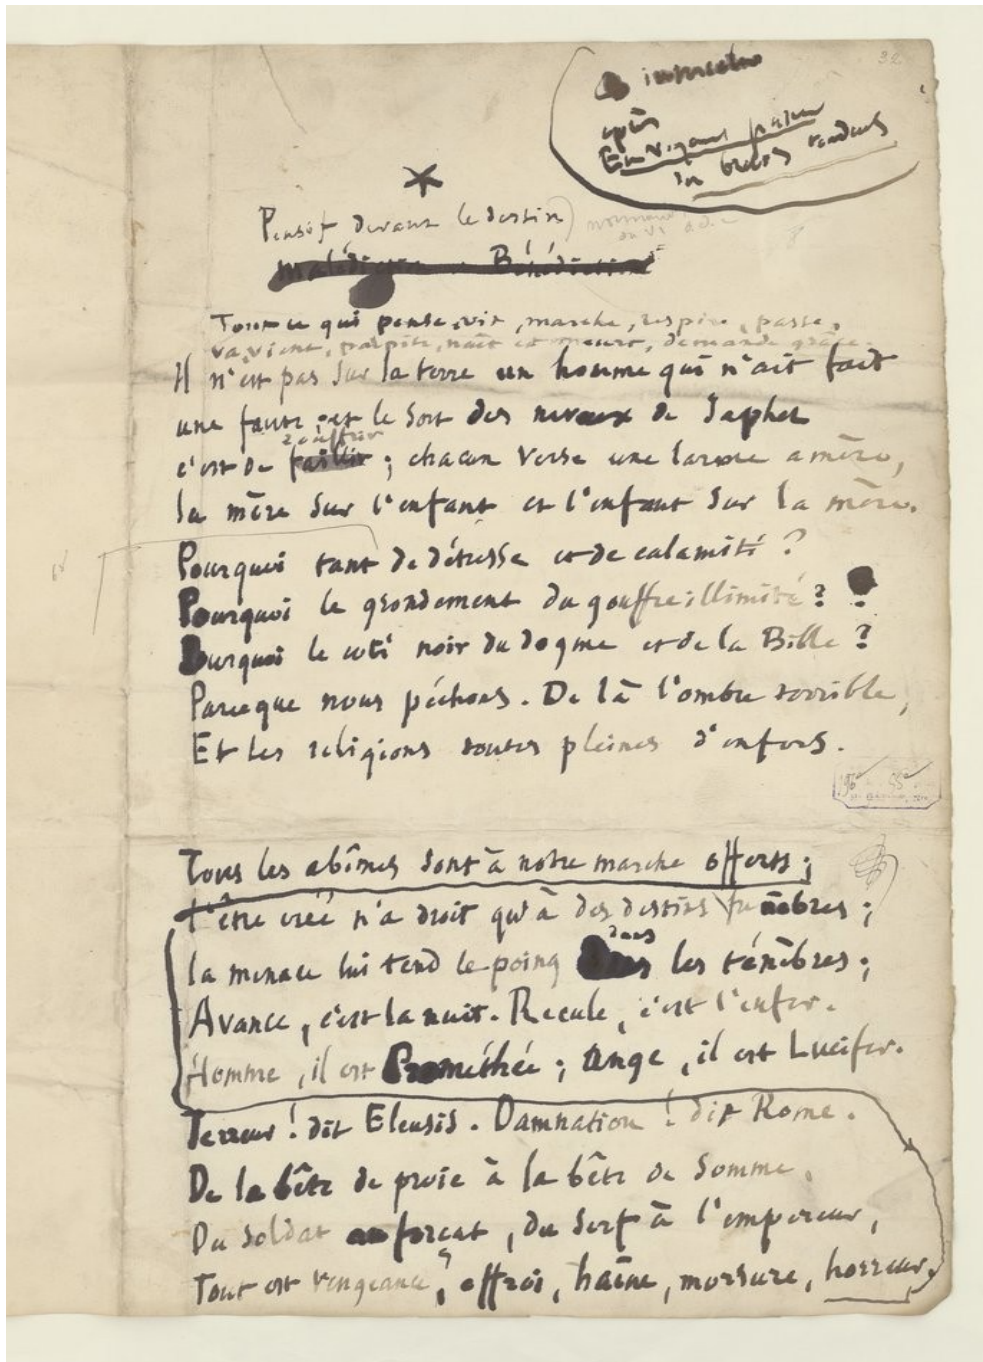 32
après
*
Pensif devant le destin
Malédiction Bénédiction
Tout ce qui pense, vit, marche, respire, passe,
va, vient, palpite, naît et meurt, demande grâce.
Il n'est pas sur la terre un homme qui n'ait fait
une faute ; et le sort des neveux de Japhet
souffrir
c'est de faillir ; chacun verse une larme amère,
la mère sur l'enfant et l'enfant sur la mère.
Pourquoi tant de détresse et de calamité ?
Pourquoi le grondement du gouffre illimité ?
Pourquoi le côté noir du dogme et de la Bible ?
Parceque nous péchons. De là l'ombre terrible,
Et les religions toutes pleines d'enfers.
Tous les abîmes sont à notre marche offerts ;
L'être créé n'a droit qu'à des destins funèbres ;
dans
la menace lui tend le poing les ténèbres ;
Avance, c'est la nuit. Recule, c'est l'enfer.
Homme, il est Prométhée ; ange, il est Lucifer.
Terreur ! dit Eleusis. Damnation ! dit Rome.
De la bête de proie à la bête de somme,
Du soldat au forçat, du serf à l'empereur,
Tout est vengeance, effroi, haine, morsure, horreur.